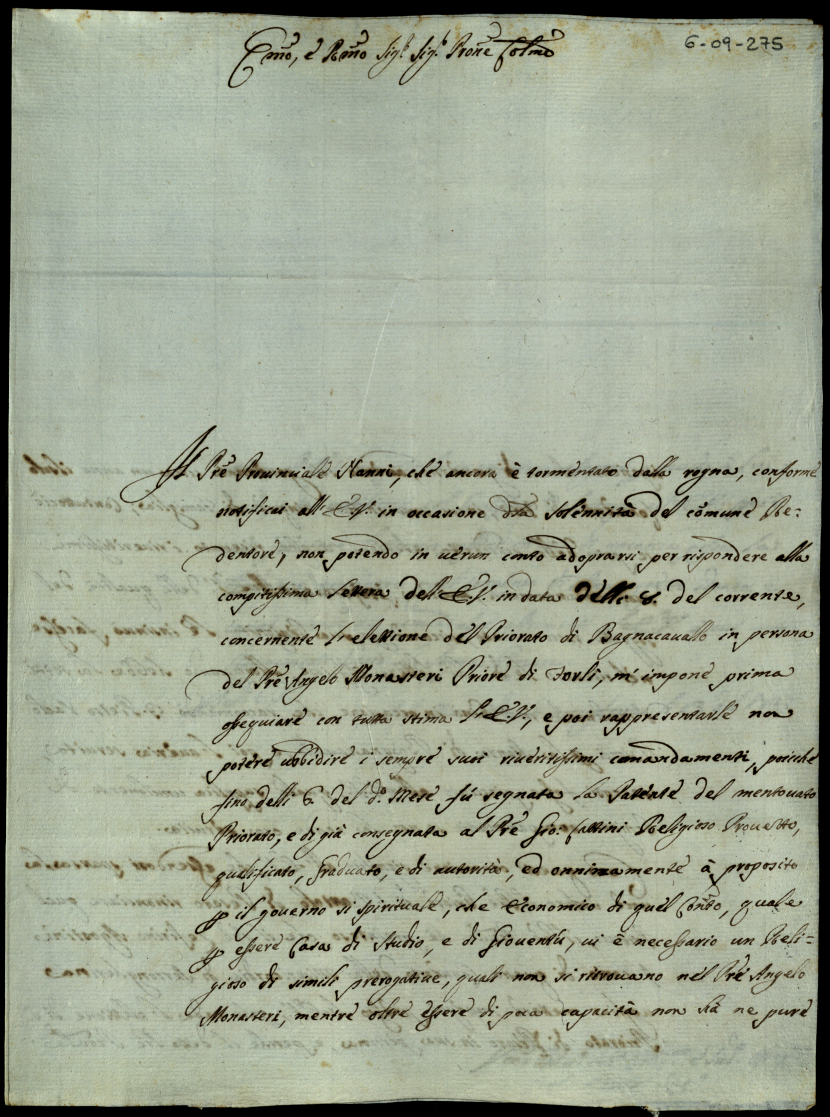 6-09-275
Emo, è Rmo Sigr Sigr Prone Colmo
Il Prè Provinciale Nanni, chè ancora è tormentato dalla rogna, conforme
notificai all' E.V. in occasione della solennità del comune Re-
dentore, non potendo in verun conto adoprarsi per rispondere alla
compitissima lettera dell' E.V. in data delli 8. del corrente,
concernente l'elezzione del Priorato di Bagnacavallo in persona
del Prè Angelo Monasteri Priore di Forlì, m' impone prima
ossequiare con tutta stima l'E.V., e poi rappresentarle non
potere ubbidire i sempre suoi riveritissimi comandamenti, poiche
fino delli 6. del do. Mese fù segnata la Patente del mentovato
Priorato, e di già consegnata al Prè Gio: Cattini Religioso Provetto,
qualificato, graduato, e di autorità, ed onninamente à proposito
p il governo si spirituale, che economico di quel Conto, quale
p essere Casa di Studio, e di Gioventù, vi è necessario un Reli=
gioso di simili prerogative, quali non si ritrovano nel Prè Angelo
Monasteri, mentre oltre essere di poca capacità non hà ne pure